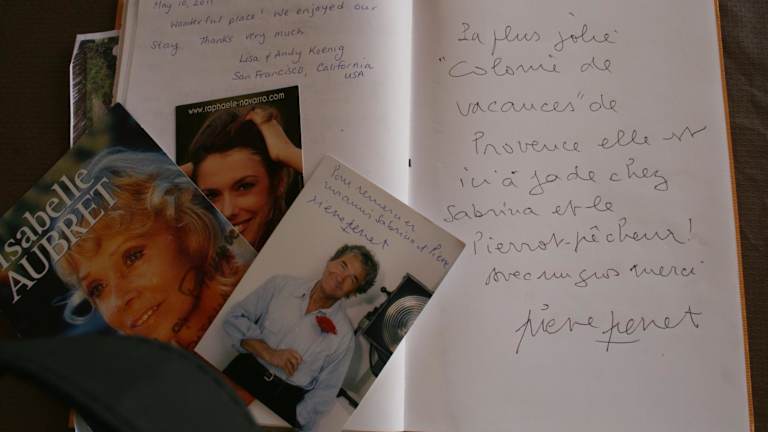 May 10, 2011
Wonderful place! We enjoyed our
stay. Thanks very much.
Lisa & Andy Koenig
San Francisco, California
USA
www.raphaele-navarro.com
Isabelle
AUBRET
Pour remercier
mon ami Sabrina et Pierre
pierre perret
La plus jolie
"Colonie de
vacances" de
Provence elle est
ici à Jade chez
Sabrina et le
Pierrot-pêcheur!
Avec un gros merci
pierre perret